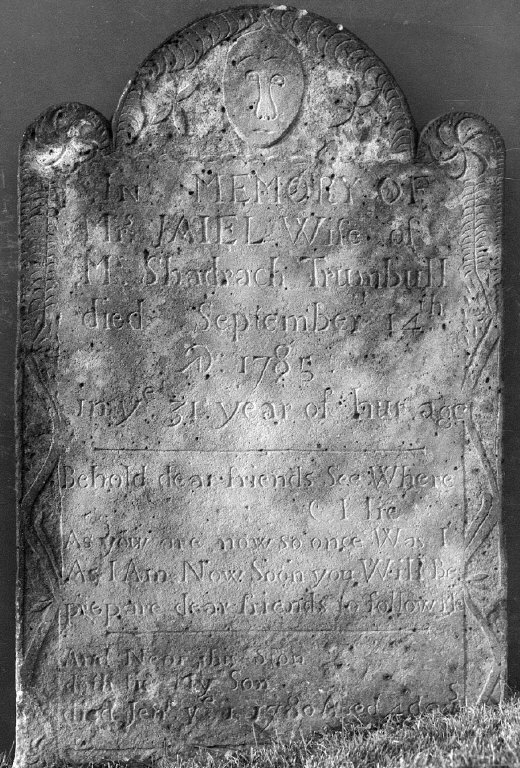 In MEMORY OF
Mrs JAIEL Wife of
Mr Shadrach Trumbull
died September 14th
AD 1785
in ye 31 year of hur age
Behold dear friends See Where
I lie
As you are now so once Was I
As I Am Now Soon you Will Be
prepare dear friends to follow Me
And Near this
doth lie My Son
died ye 1 1780 Aged 4